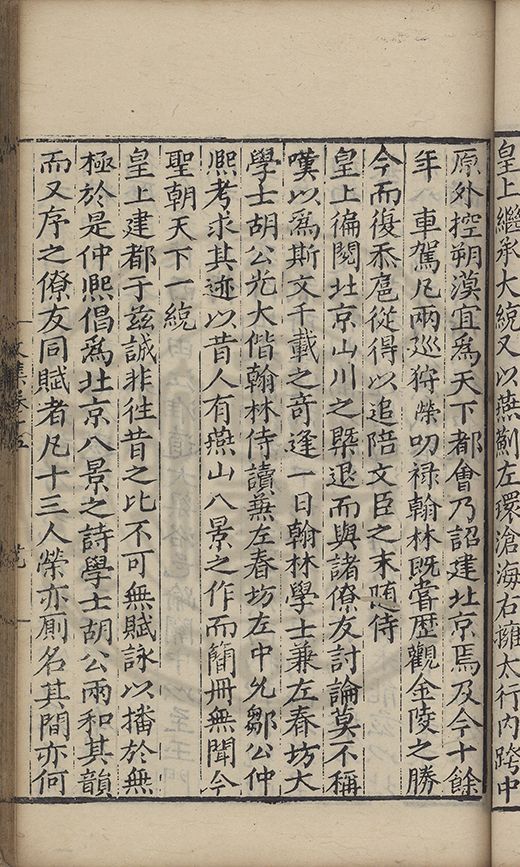 皇上繼承大統又以燕薊左環滄海右擁太行內跨中
原外控朔漠宜爲天下都會乃詔建北京焉及今十餘
年　車駕凡兩巡狩榮叨禄翰林旣嘗歷觀金陵之勝
今而復忝扈從得以追陪文臣之末随侍
皇上徧閱北京山川之槩退而與諸僚友討論莫不稱
嘆以爲斯文千載之奇逢一日翰林學士兼左春坊大
學士胡公光大偕翰林侍讀兼左春坊左中允鄒公仲
熈考求其迹以昔人有燕山八景之作而簡冊無聞今
聖朝天下一統
皇上建都于兹誠非徃昔之比不可無賦詠以播於無
極於是仲熈倡爲北京八景之詩學士胡公兩和其韻
而又序之僚友同賦者凡十三人榮亦廁名其間亦何